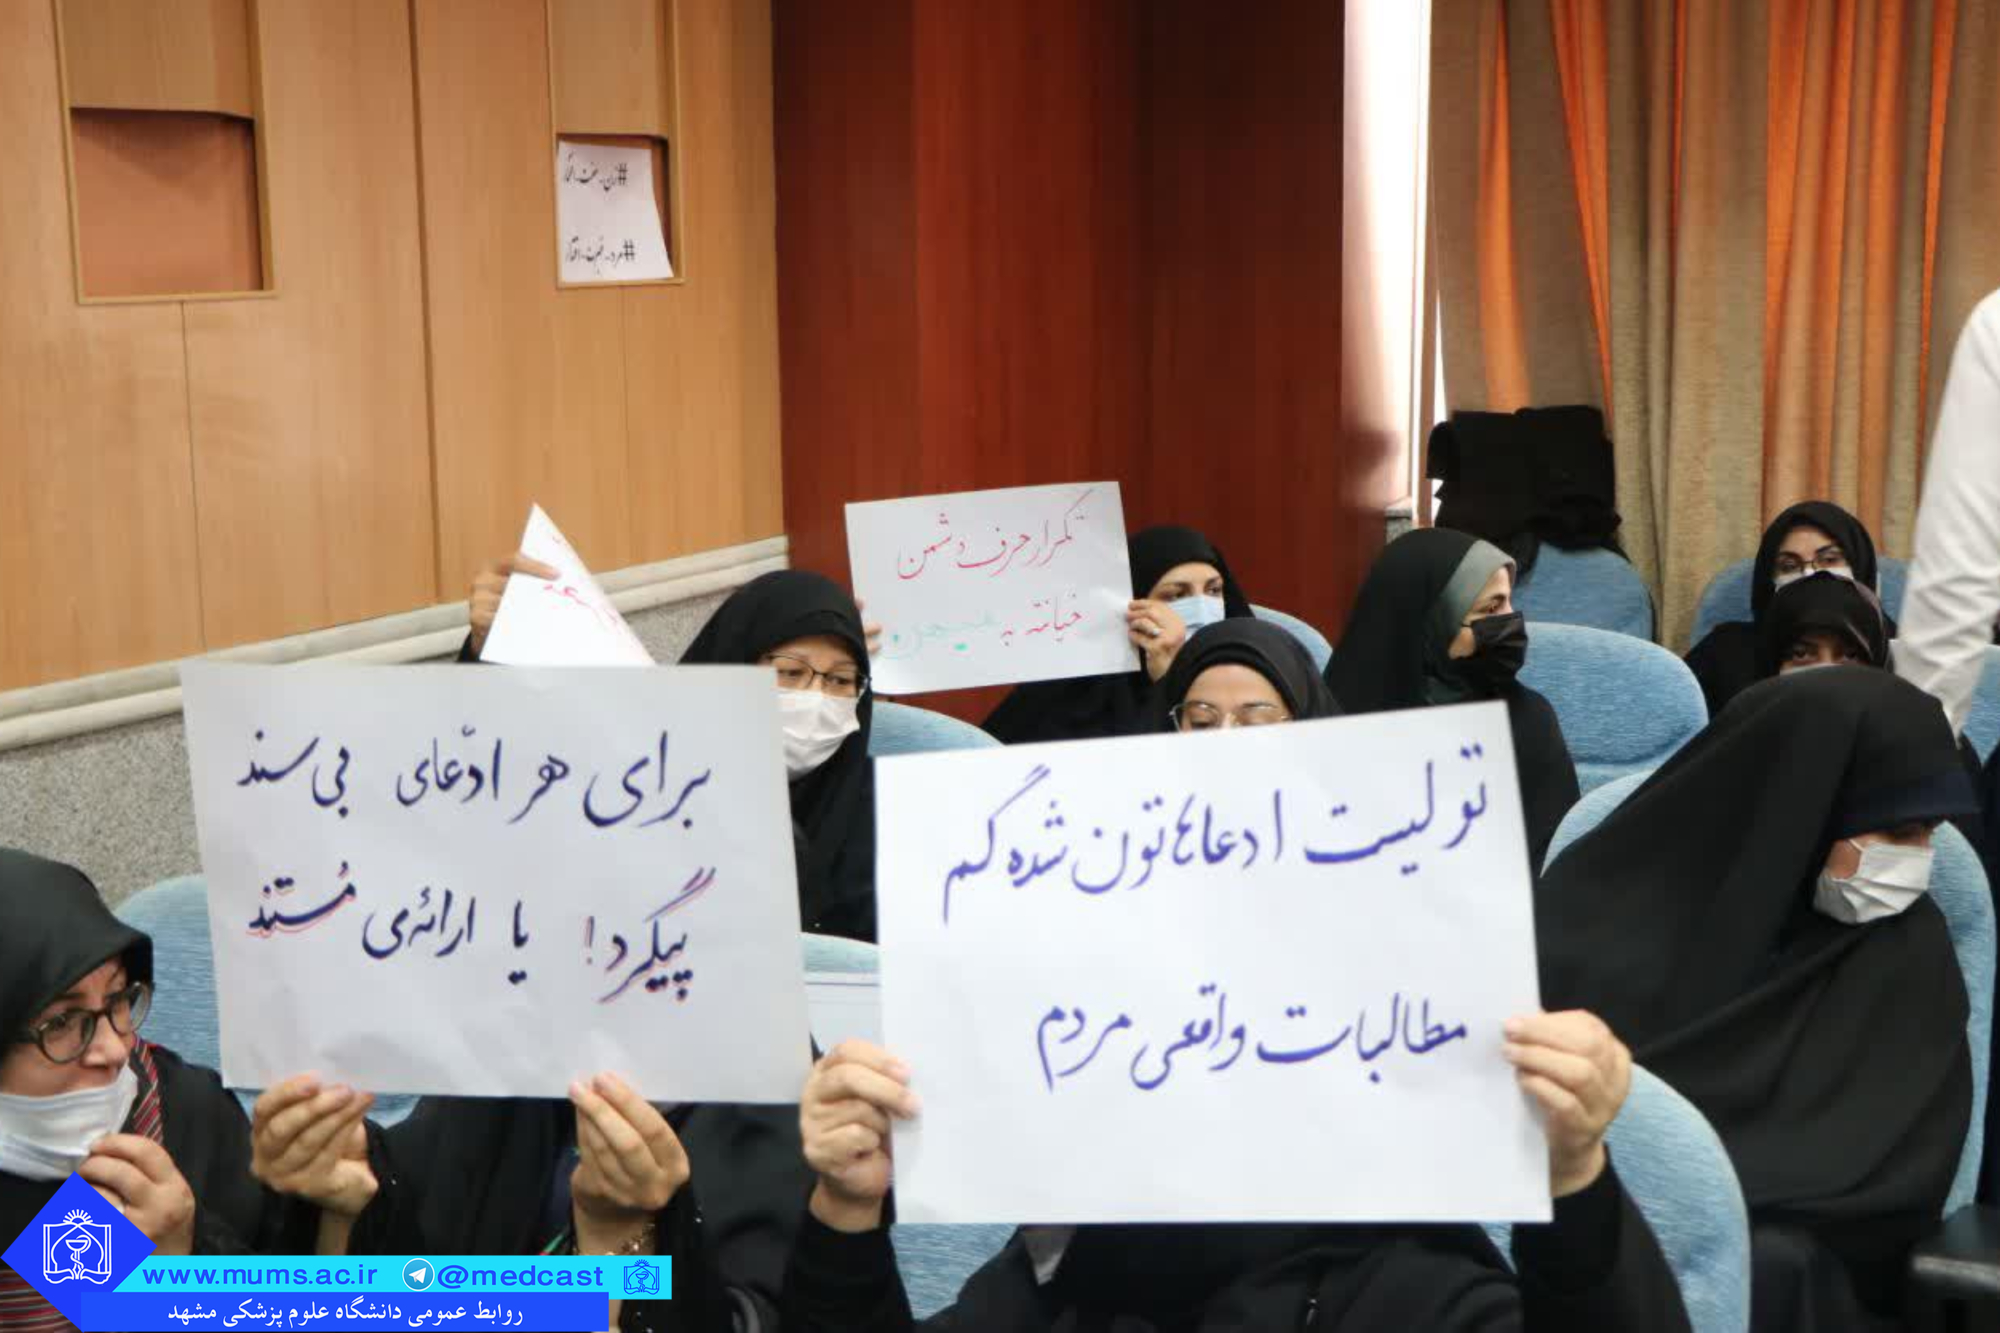 #زن_عفت_افتخار
#مرد_غیرت_اقتدار
تکرار حرف دشمن
خیانته به میهن
برای هر ادّعای بی سند
پیگرد! یا ارائه‌ی مُستند
تو لیست ادعاهاتون شده گم
مطالبات واقعی مردم
www.mums.ac.ir @medcast
روابط عمومی دانشگاه علوم پزشکی مشهد